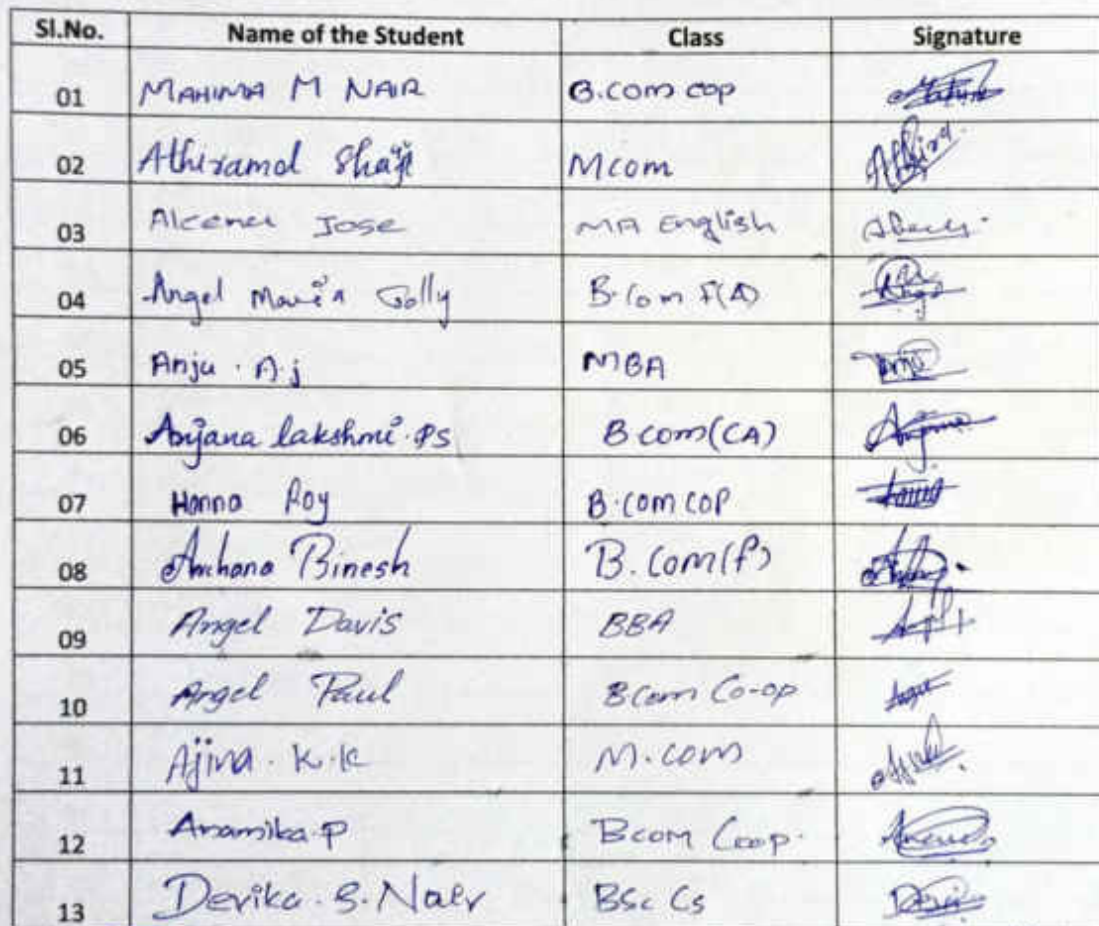 Sl.No. Name of the Student Class Signature
01 MAHIMA M NAIR B.com cop
02 Athiramol Shaji Mcom Athira
03 Aleena Jose MA English
04 Angel Maria Jolly B.Com F(A)
05 Anju . A.j MBA Anju
06 Anjana lakshmi.PS B com(CA) Anjana
07 Hanna Roy B.com cop
08 Archana Binesh B.Com(f)
09 Angel Davis BBA
10 Angel Paul BCom Co-op
11 Ajina . K.K M.com
12 Anamika.P Bcom Coop.
13 Devika.S.Nair BSc Cs